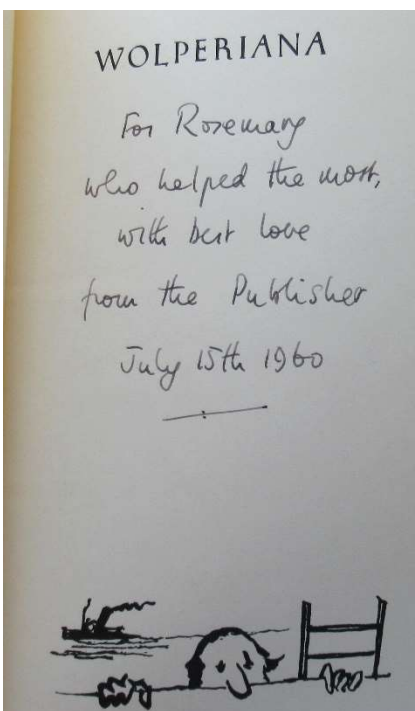 WOLPERIANA
For Rosemary
who helped the most,
with best love
from the Publisher
July 15th 1960